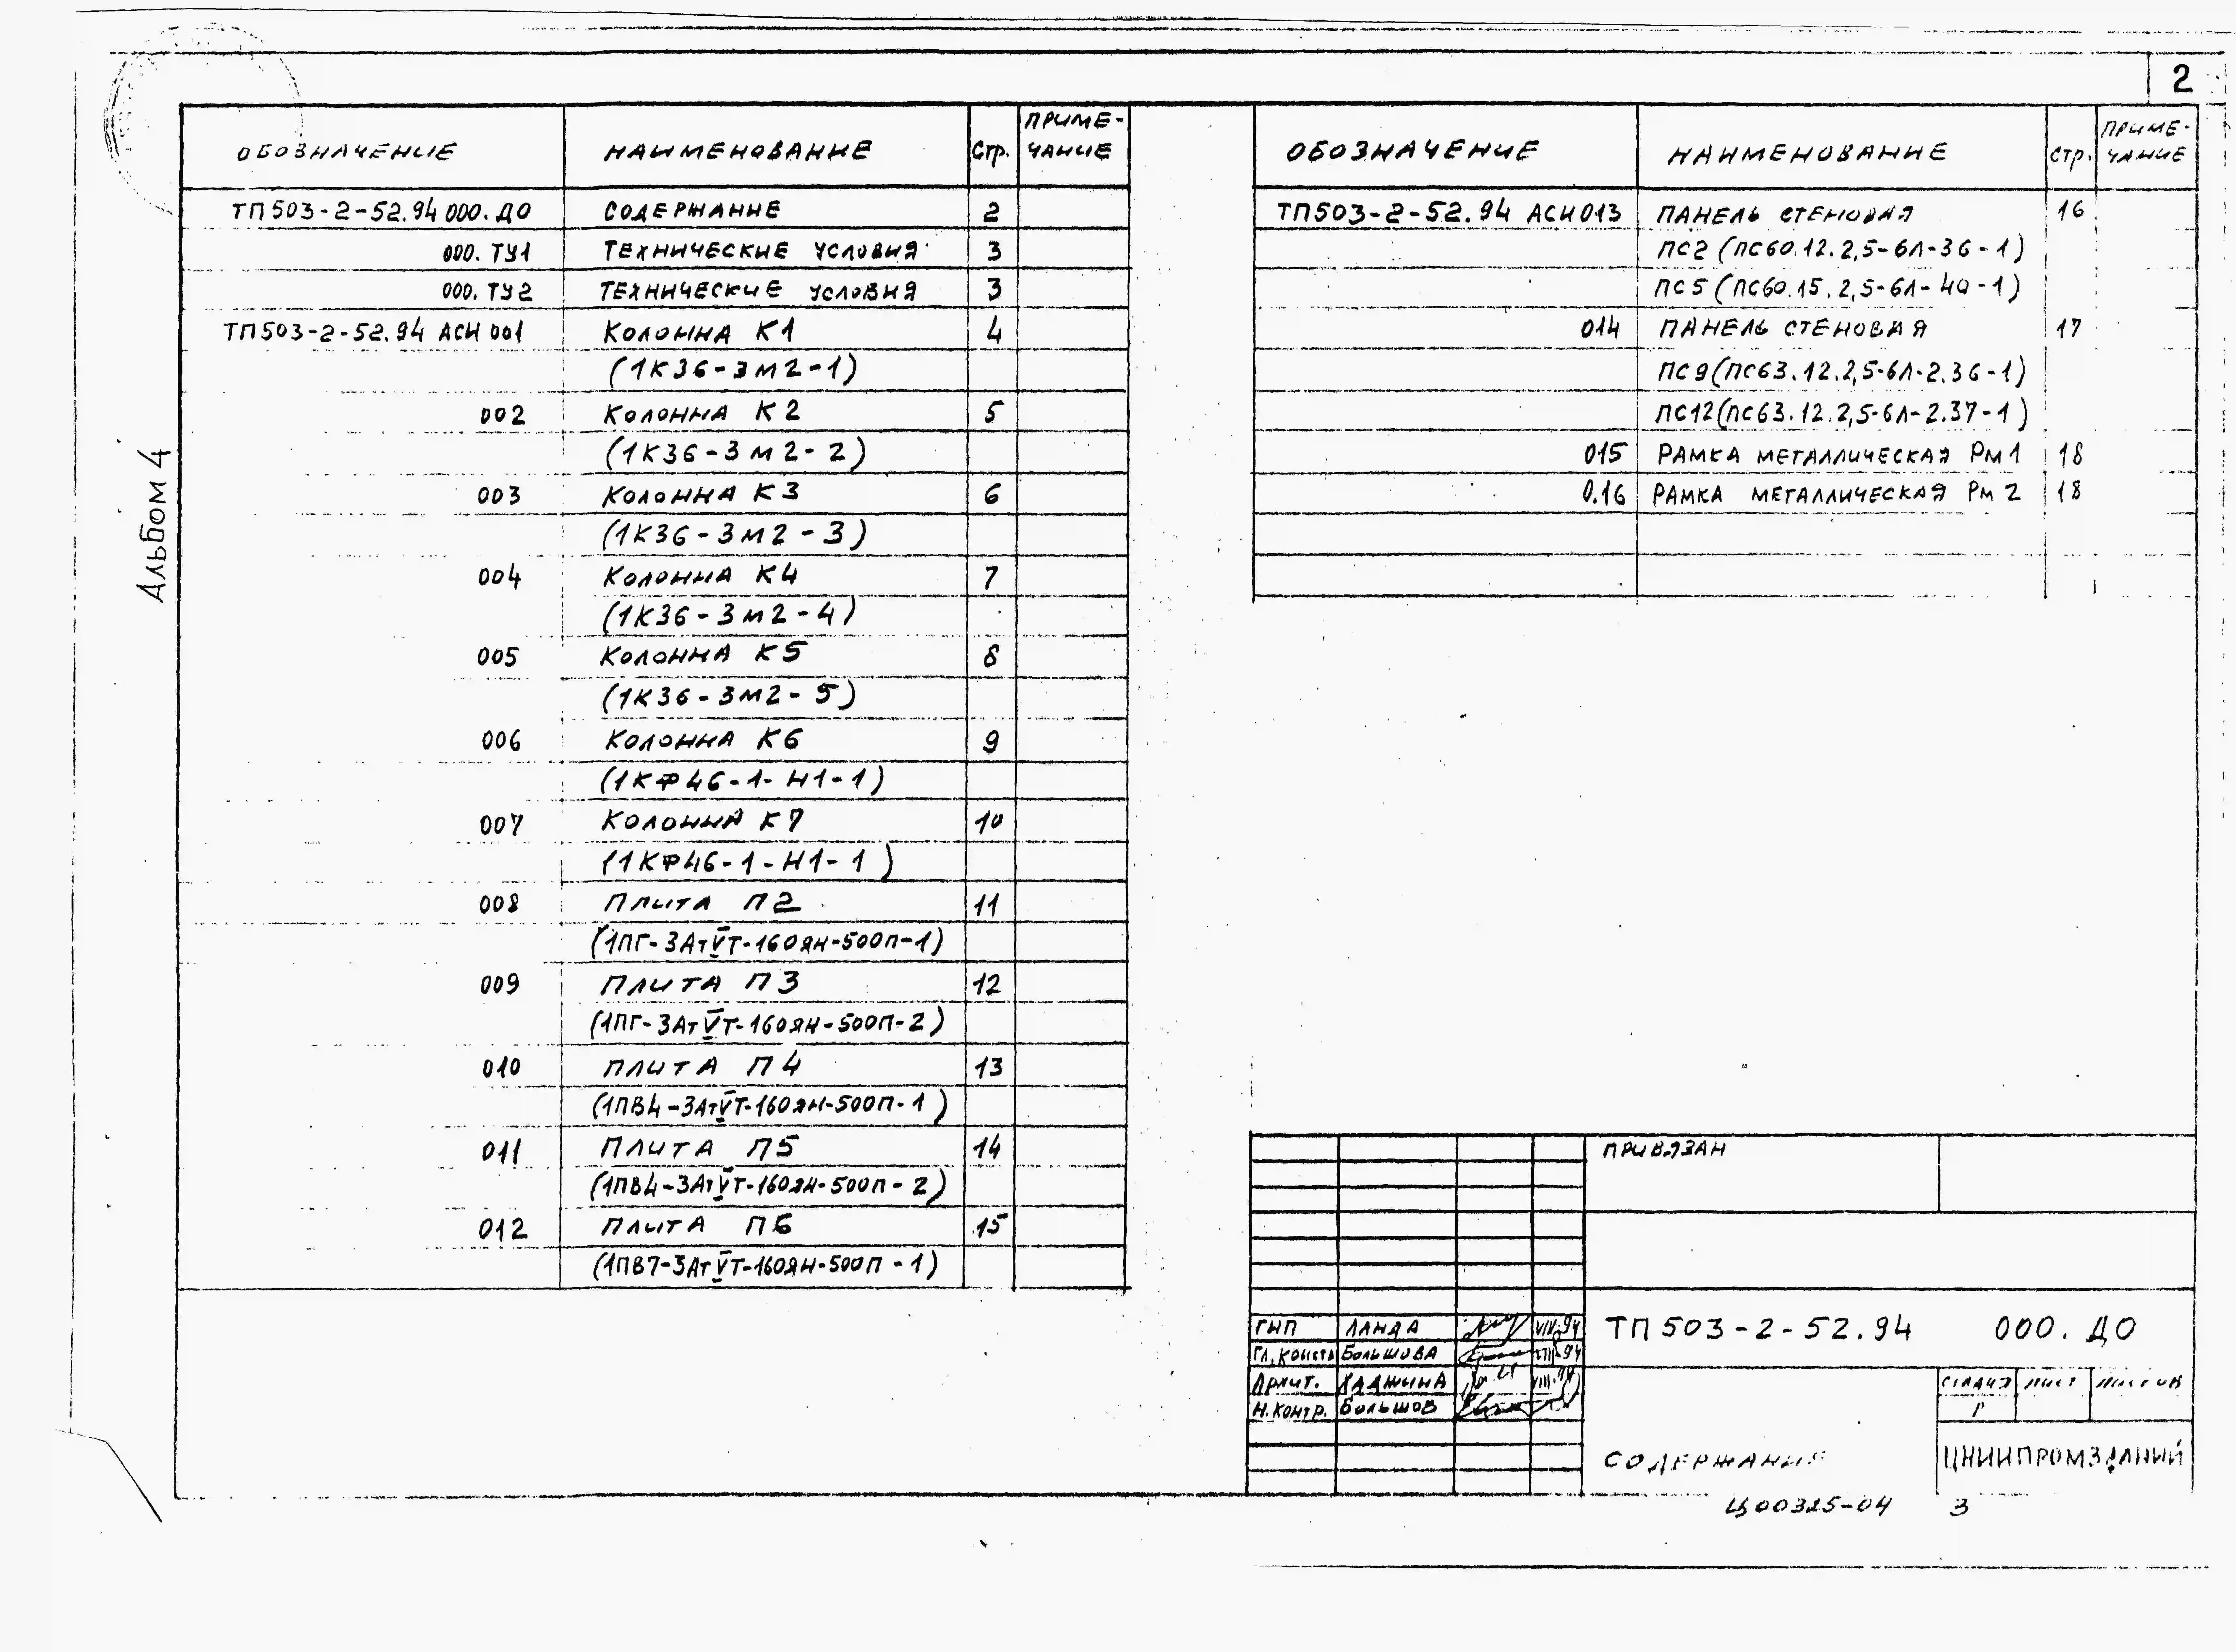 2
Альбом 4
ОБОЗНАЧЕНИЕ НАИМЕНОВАНИЕ Стр. ПРИМЕ-
ЧАНИЕ
ТП503-2-52.94 000.ДО СОДЕРЖАНИЕ 2
000.ТУ1 ТЕХНИЧЕСКИЕ УСЛОВИЯ 3
000.ТУ2 ТЕХНИЧЕСКИЕ УСЛОВИЯ 3
ТП503-2-52.94 АСИ 001 КОЛОННА К1 4
(1К36-3М2-1)
002 КОЛОННА К2 5
(1К36-3М2-2)
003 КОЛОННА К3 6
(1К36-3М2-3)
004 КОЛОННА К4 7
(1К36-3М2-4)
005 КОЛОННА К5 8
(1К36-3М2-5)
006 КОЛОННА К6 9
(1КФ46-1-Н1-1)
007 КОЛОННА К7 10
(1КФ46-1-Н1-1)
008 ПЛИТА П2 11
(1ПГ-3АтVТ-160ЯН-500П-1)
009 ПЛИТА П3 12
(1ПГ-3АтVТ-160ЯН-500П-2)
010 ПЛИТА П4 13
(1ПВ4-3АтVТ-160ЯН-500П-1)
011 ПЛИТА П5 14
(1ПВ4-3АтVТ-160ЯН-500П-2)
012 ПЛИТА П6 15
(1ПВ7-3АтVТ-160ЯН-500П-1)
ОБОЗНАЧЕНИЕ НАИМЕНОВАНИЕ Стр. ПРИМЕ-
ЧАНИЕ
ТП503-2-52.94 АСИ013 ПАНЕЛЬ СТЕНОВАЯ 16
ПС2(ПС60.12.2,5-6Л-36-1)
ПС5(ПС60.15.2,5-6Л-40-1)
014 ПАНЕЛЬ СТЕНОВАЯ 17
ПС9(ПС63.12.2,5-6Л-2.36-1)
ПС12(ПС63.12.2,5-6Л-2.37-1)
015 РАМКА МЕТАЛЛИЧЕСКАЯ Рм1 18
0.16 РАМКА МЕТАЛЛИЧЕСКАЯ Рм2 18
ПРИВЯЗАН
ГИП ЛАНДА
Гл.констр БОЛЬШОВА
Архит.
Н.контр. БОЛЬШОВ
ТП503-2-52.94 000.ДО
СОДЕРЖАНИЕ
СТАДИЯ ЛИСТ ЛИСТОВ
Р
ЦНИИПРОМЗДАНИЙ
Ц00325-04 3